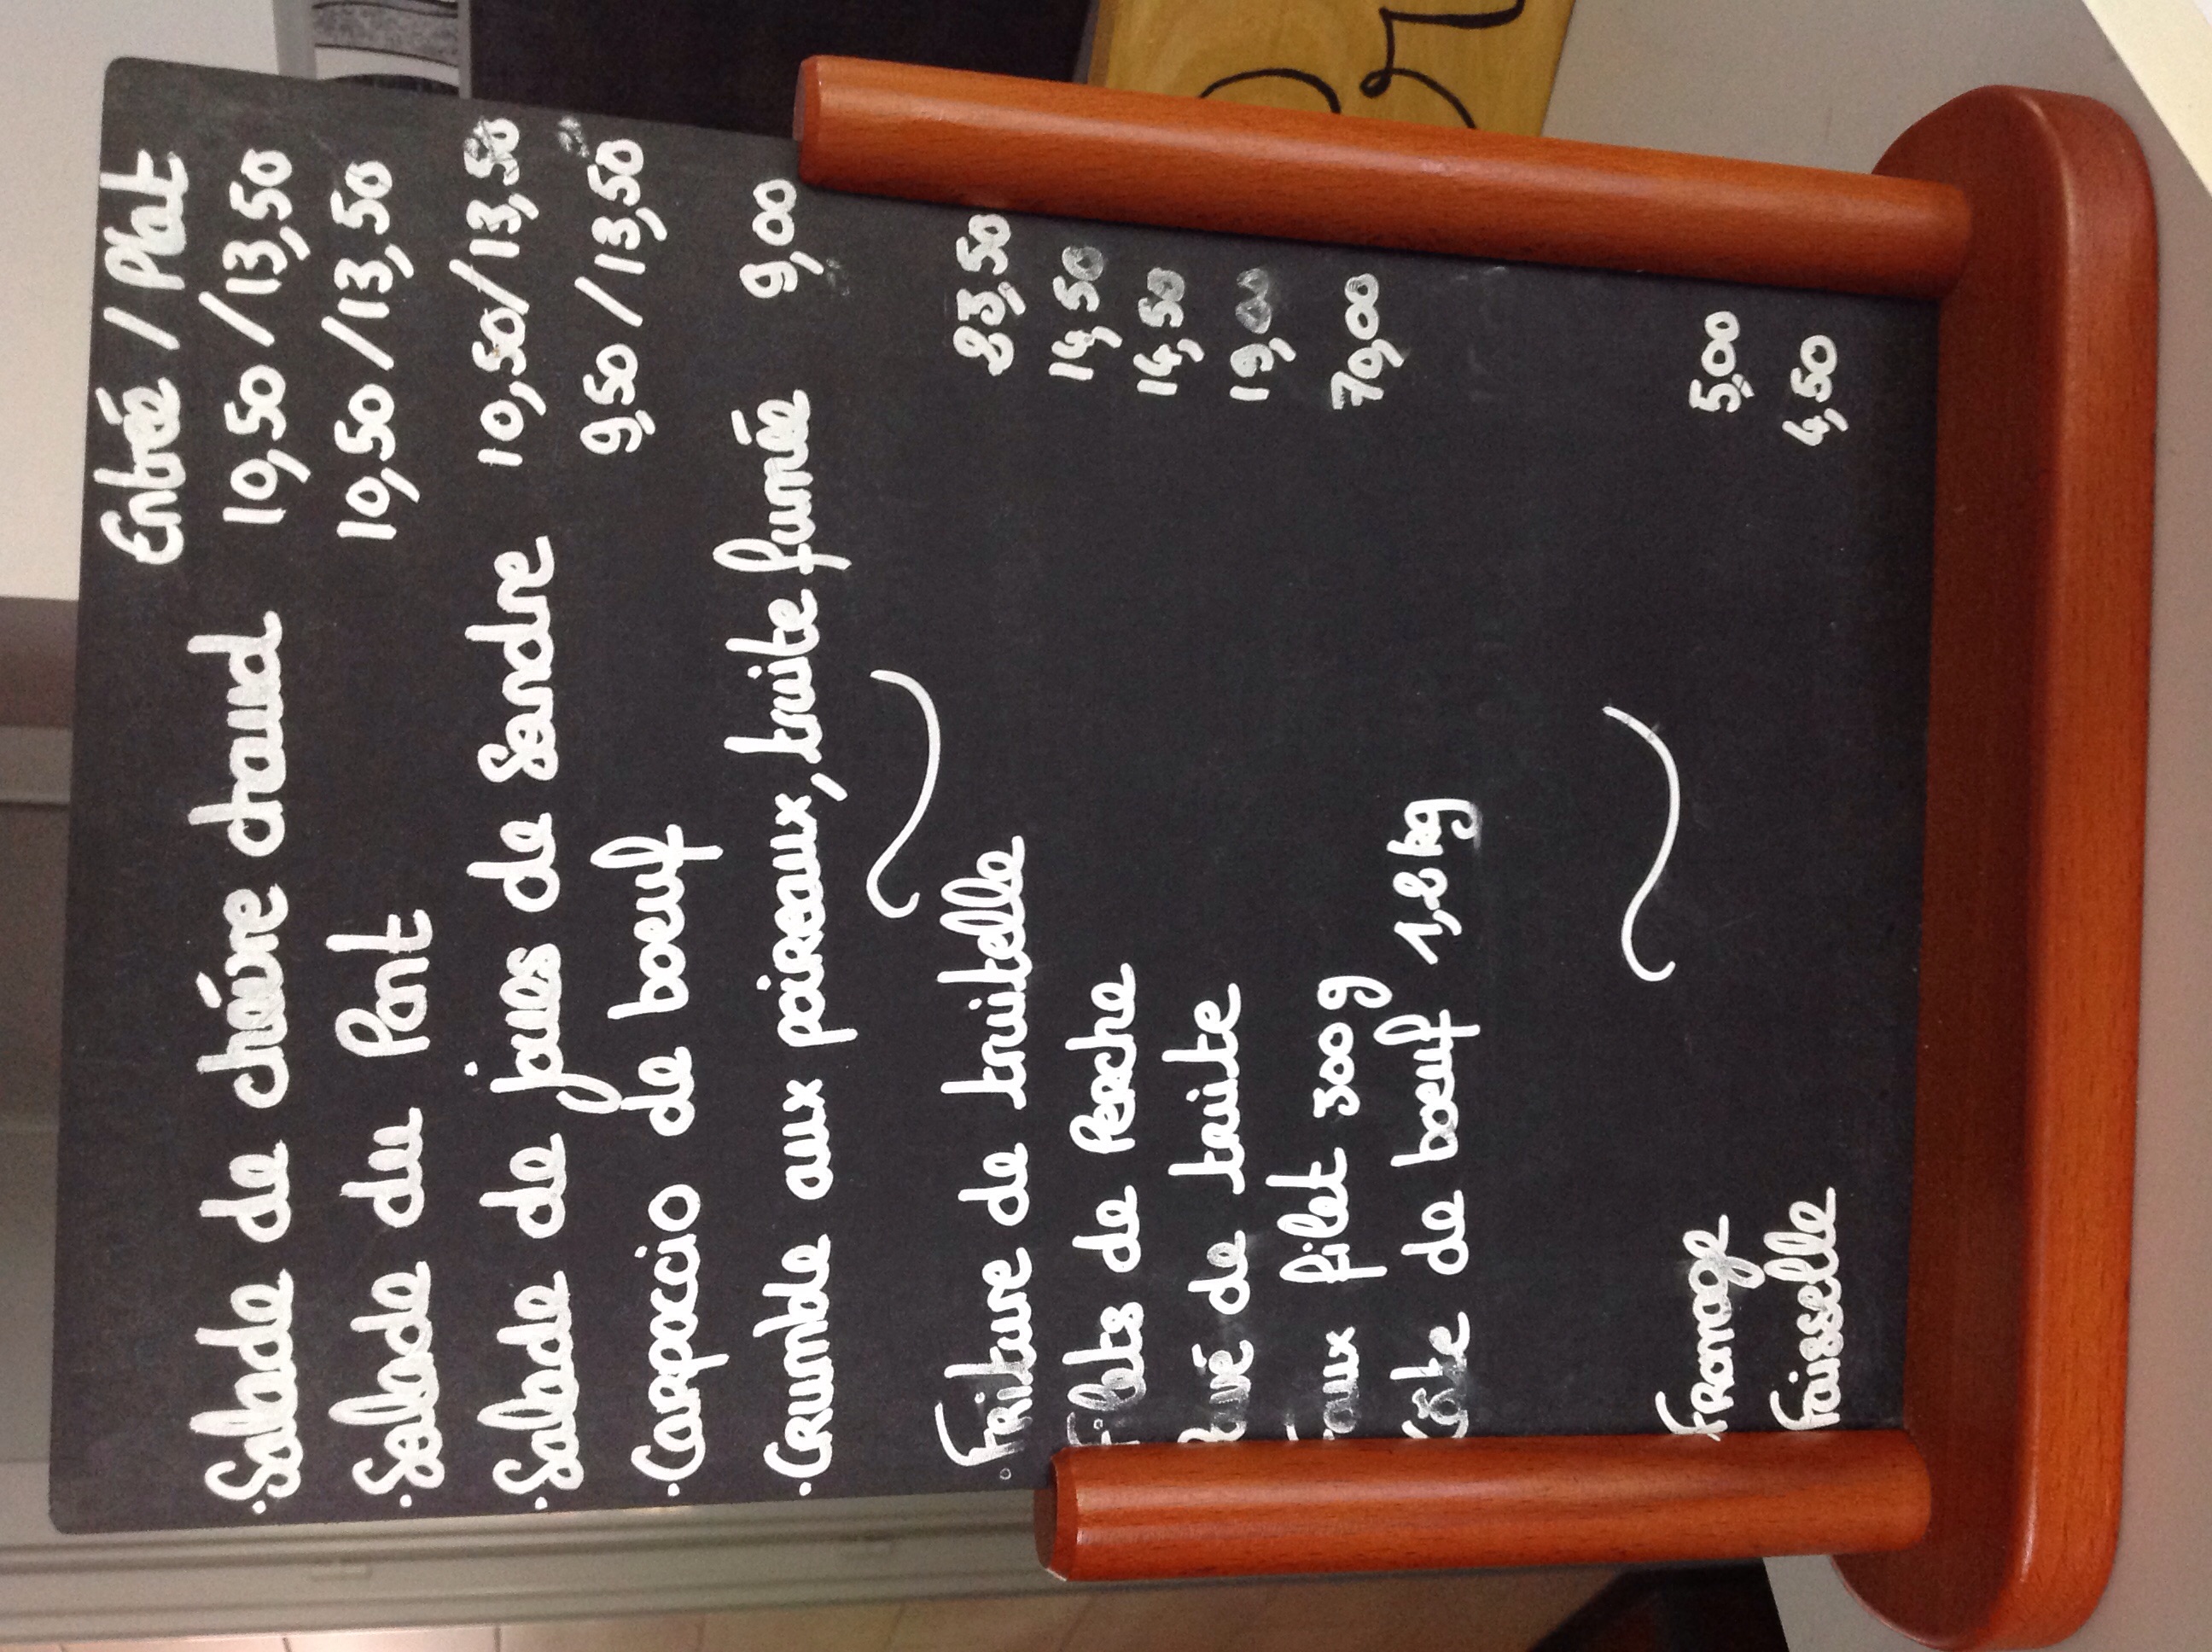 Entrée / Plat
· Salade de chèvre chaud 10,50 / 13,50
· Salade du Pont 10,50 / 13,50
· Salade de joues de Sandre 10,50 / 13,50
· Carpaccio de boeuf 9,50 / 13,50
· Crumble aux poireaux, truite fumée 9,00
Friture de truitelle 23,50
Filets de Perche 14,50
Pavé de truite 14,50
Faux filet 300g 19,00
Côte de boeuf 1,8kg 79,00
Fromage 5,00
Faisselle 4,50